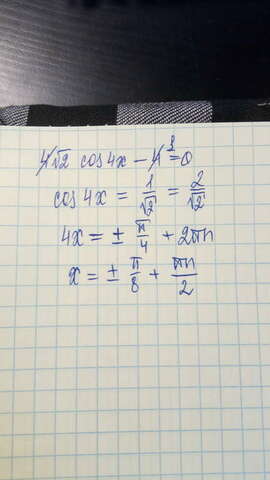 4√2 cos 4x - 4 = 0
cos 4x = 1/√2 = 2/√2
4x = ± π/4 + 2πn
x = ± π/8 + πn/2